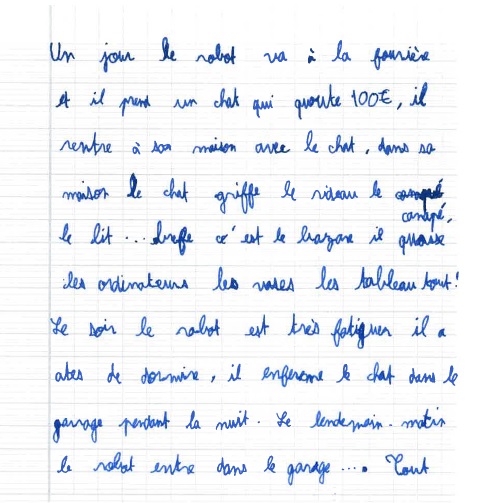 Un jour le robot va à la fourrière
et il prend un chat qui quoute 100€, il
rentre à son maison avec le chat, dans sa
maison le chat griffe le rideau le
canapé,
le lit ... breffe ce'est le bazare il quasse
les ordinateurs les vases les tableau tout!
Le soir le robot est très fatiguer il a
ates de dormire, il enfereme le chat dans le
garrage pendant la nuit. Le lendemain. matin
le robot entre dans le garage .... Tout